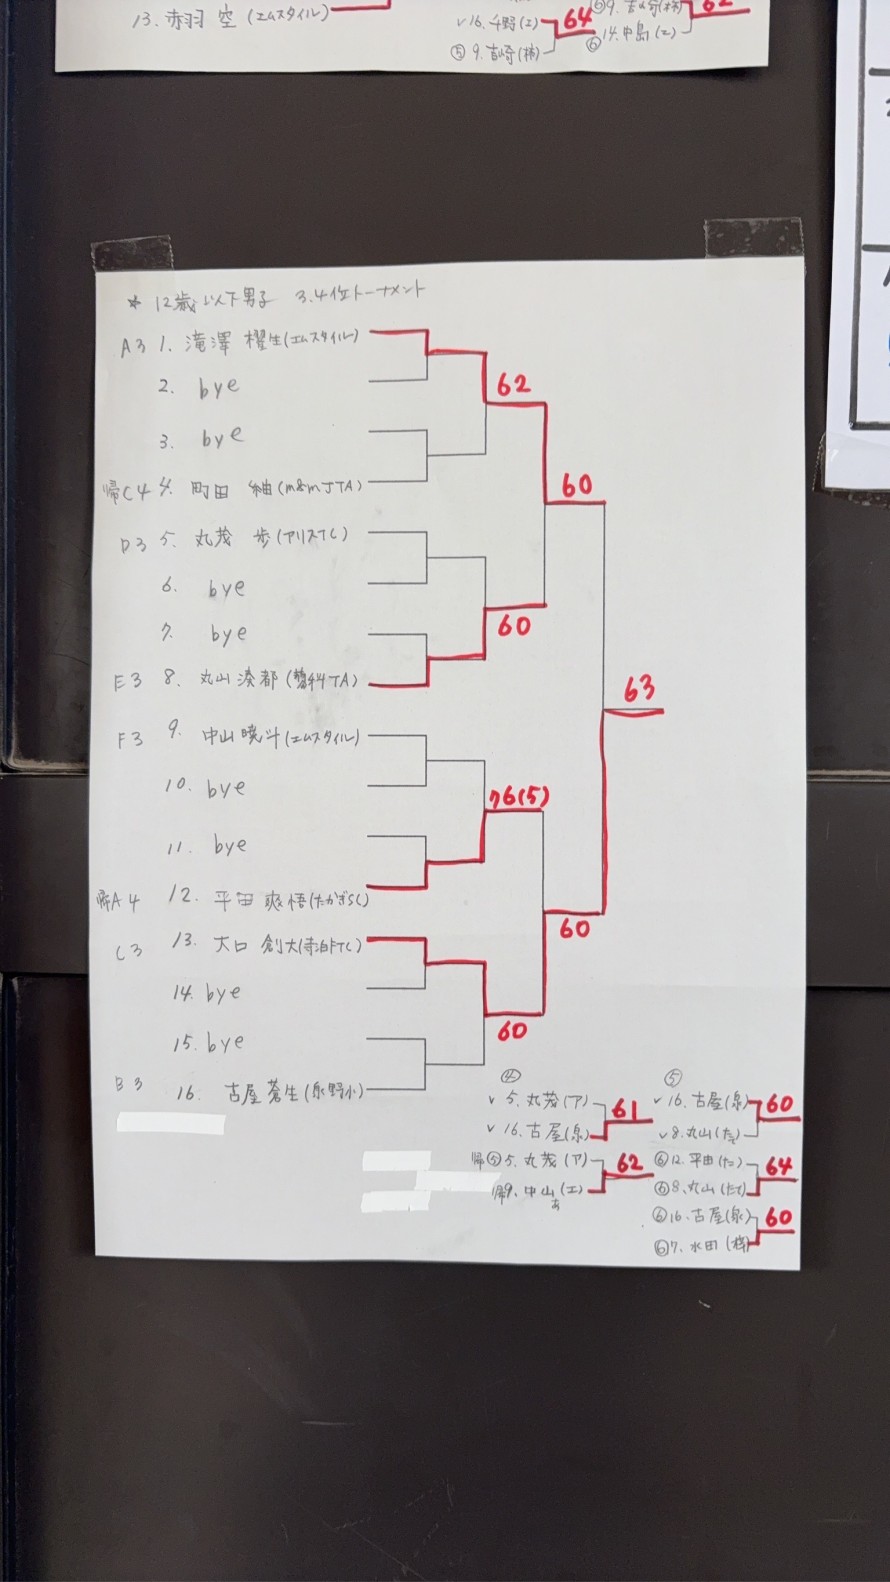 13. 赤羽 空 (エムスタイル)
✓16. 千野(エ) 64
⑤ 9. 吉崎(柿)
⑥14. 中島(エ)
* 12歳以下男子 3.4位トーナメント
A3 1. 滝澤 櫂生(エムスタイル)
2. bye
62
3. bye
帰C4 4. 町田 紬(m&mJTA)
60
D3 5. 丸茂 歩(アリスTC)
6. bye
7. bye
60
E3 8. 丸山 湊都(蓼科TA)
63
F3 9. 中山 暁斗(エムスタイル)
10. bye
76(5)
11. bye
帰A4 12. 平田 爽悟(たかぎSC)
60
C3 13. 大口 創大(寺泊FTC)
14. bye
60
15. bye
B3 16. 古屋 蒼生(泉野小)
④
✓ 5. 丸茂(ア) 61
✓ 16. 古屋(泉)
帰⑤5. 丸茂(ア) 62
帰9. 中山(エ)
あ
⑤
✓16. 古屋(泉) 60
✓8. 丸山(たて)
⑥12. 平田(た) 64
⑥8. 丸山(たて)
⑥16. 古屋(泉) 60
⑥7. 水田(柿)